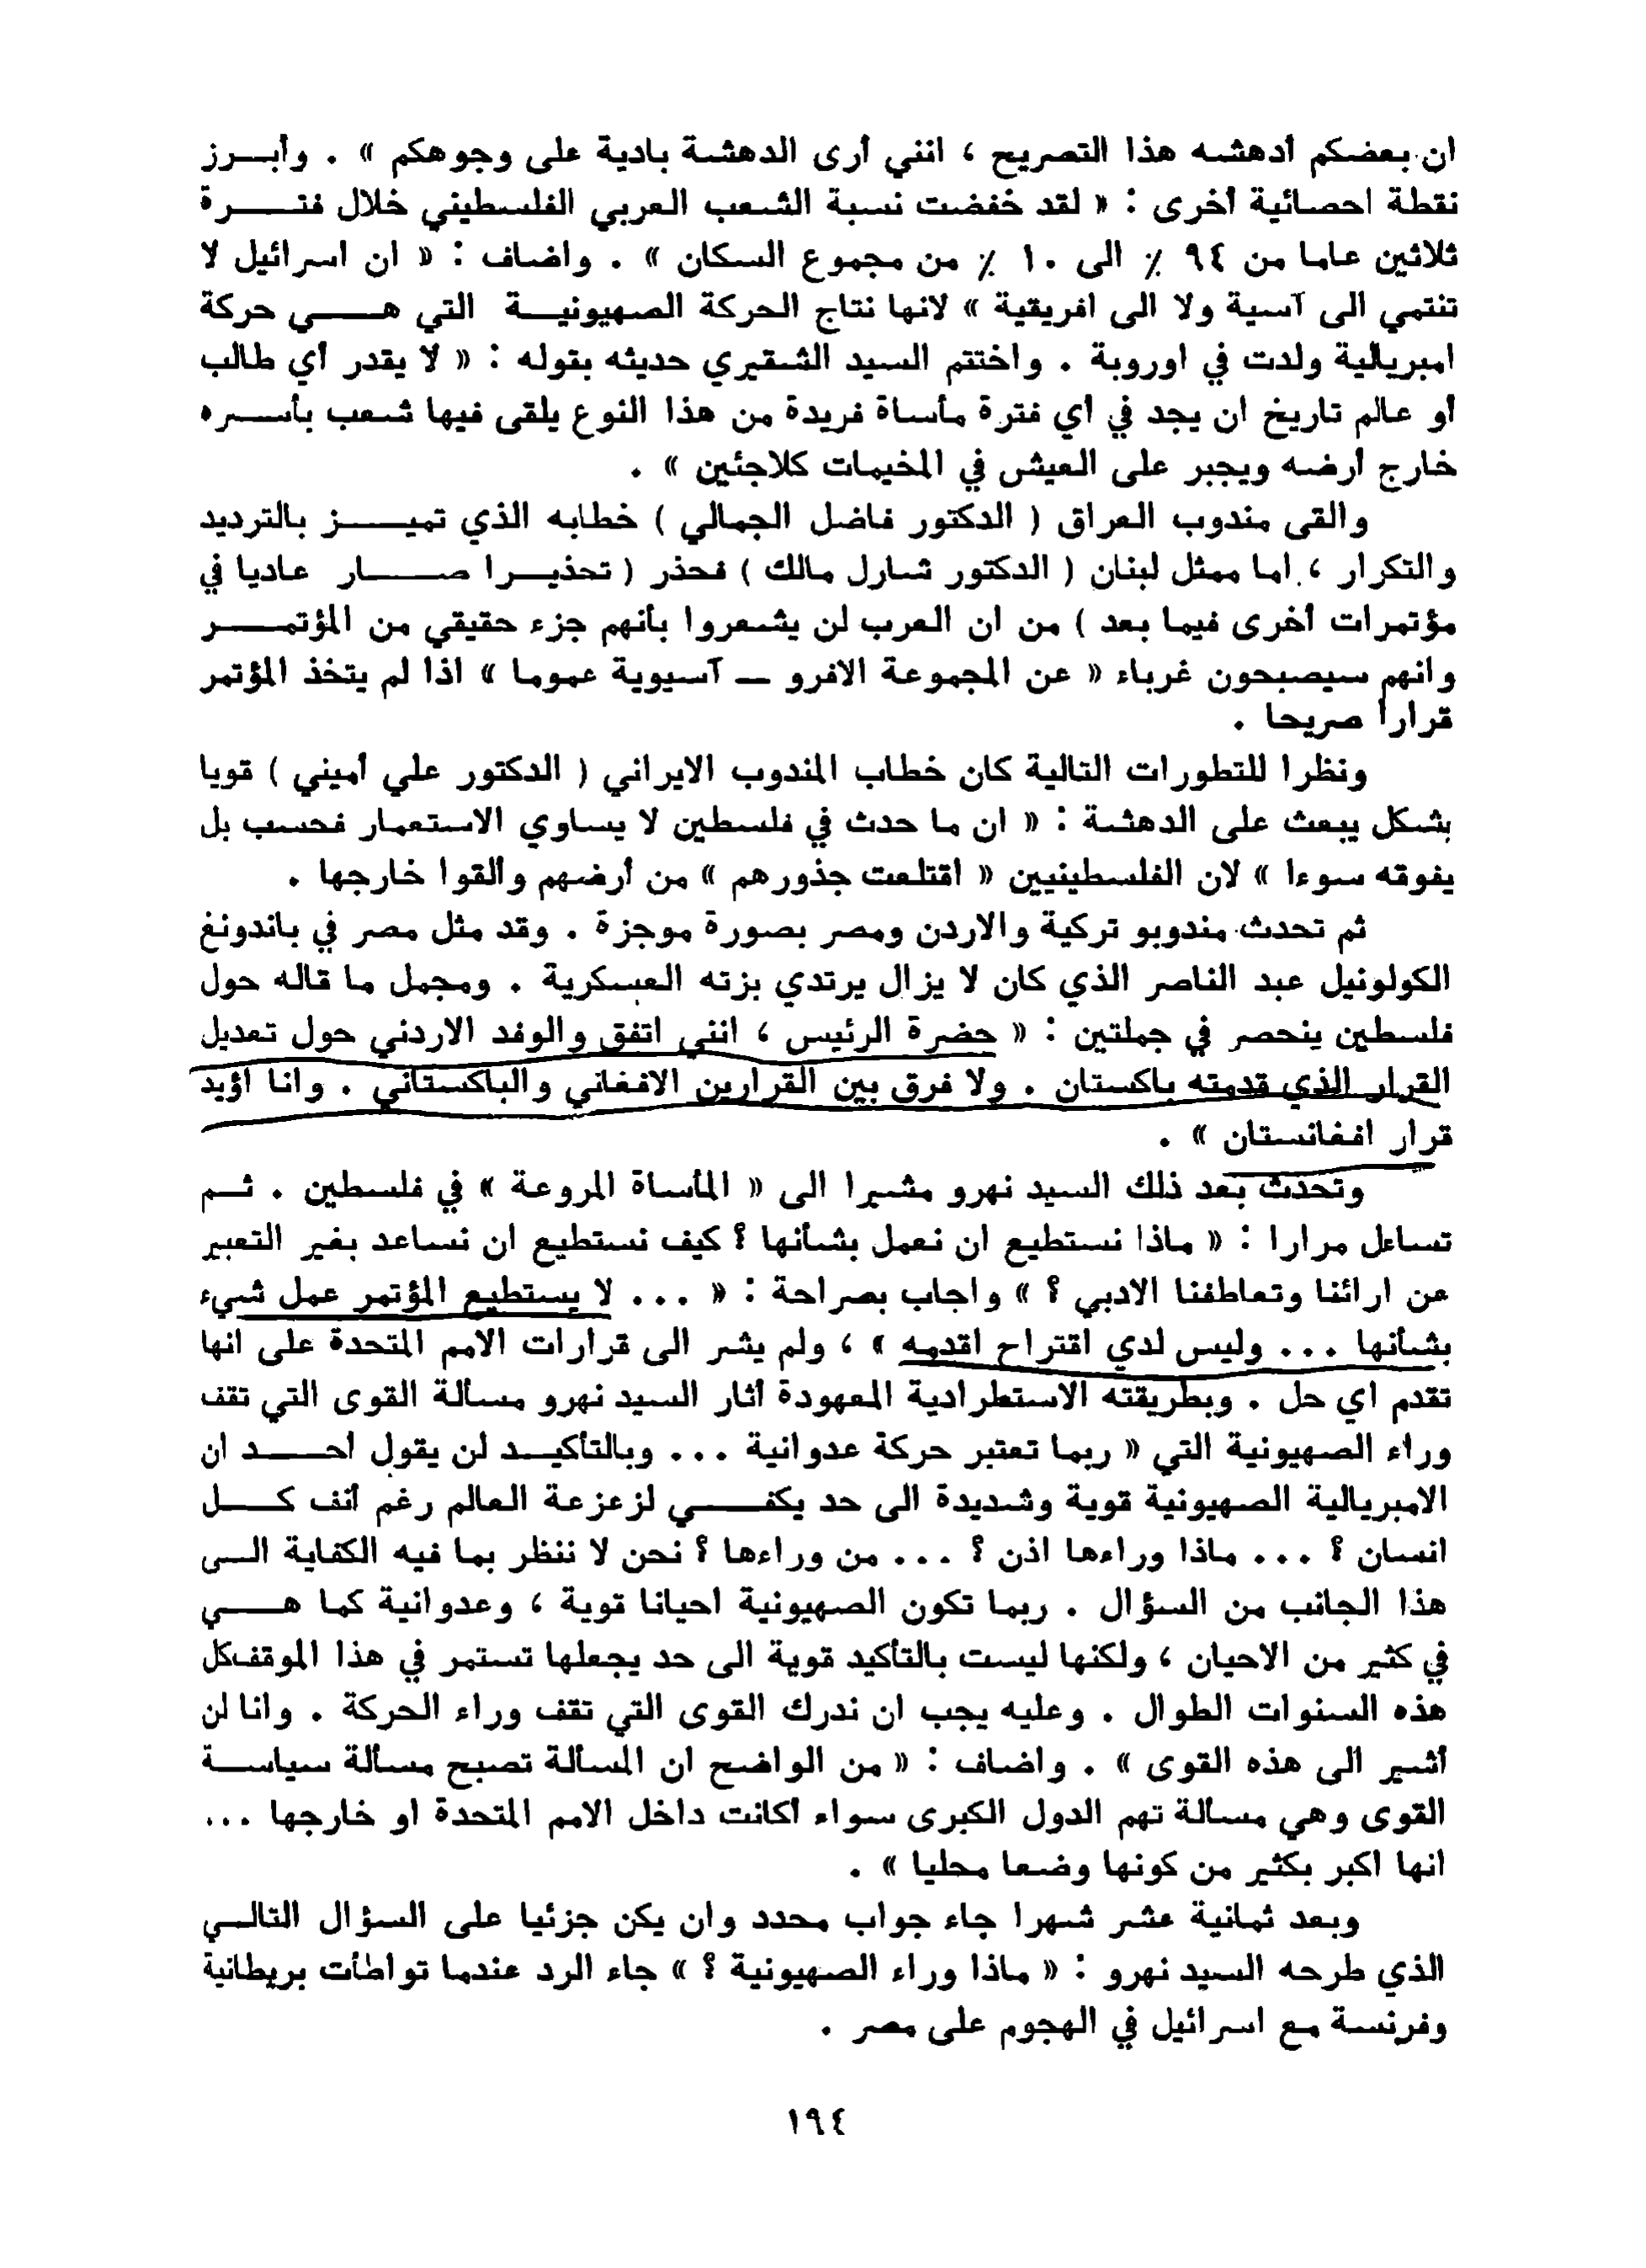 ان بعضكم أدهشه هذا التصريح ، انني أرى الدهشة بادية على وجوهكم » . وأبـــرز
نقطة احصائية أخرى : « لقد خفضت نسبة الشعب العربي الفلسطيني خلال فتـــــرة
ثلاثين عاما من ٩٤ ٪ الى ١٠ ٪ من مجموع السكان » . واضاف : « ان اسرائيل لا
تنتمي الى آسية ولا الى افريقية » لانها نتاج الحركة الصهيونيـــة التي هـــــي حركة
امبريالية ولدت في اوروبة . واختتم السيد الشقيري حديثه بقوله : « لا يقدر أي طالب
أو عالم تاريخ ان يجد في أي فترة مأساة فريدة من هذا النوع يلقى فيها شعب بأســـره
خارج أرضه ويجبر على العيش في المخيمات كلاجئين » .
والقى مندوب العراق ( الدكتور فاضل الجمالي ) خطابه الذي تميـــــز بالترديد
والتكرار ، اما ممثل لبنان ( الدكتور شارل مالك ) فحذر ( تحذيـــرا صـــــار عاديا في
مؤتمرات أخرى فيما بعد ) من ان العرب لن يشعروا بأنهم جزء حقيقي من المؤتمـــــر
وانهم سيصبحون غرباء « عن المجموعة الافرو — آسيوية عموما » اذا لم يتخذ المؤتمر
قرارا صريحا .
ونظرا للتطورات التالية كان خطاب المندوب الايراني ( الدكتور علي أميني ) قويا
بشكل يبعث على الدهشة : « ان ما حدث في فلسطين لا يساوي الاستعمار فحسب بل
يفوقه سوءا » لان الفلسطينيين « اقتلعت جذورهم » من أرضهم والقوا خارجها .
ثم تحدث مندوبو تركية والاردن ومصر بصورة موجزة . وقد مثل مصر في باندونغ
الكولونيل عبد الناصر الذي كان لا يزال يرتدي بزته العسكرية . ومجمل ما قاله حول
فلسطين ينحصر في جملتين : « حضرة الرئيس ، انني اتفق والوفد الاردني حول تعديل
القرار الذي قدمته باكستان . ولا فرق بين القرارين الافغاني والباكستاني . وانا اؤيد
قرار افغانستان » .
وتحدث بعد ذلك السيد نهرو مشيرا الى « المأساة المروعة » في فلسطين . ثــم
تساءل مرارا : « ماذا نستطيع ان نعمل بشأنها ؟ كيف نستطيع ان نساعد بغير التعبير
عن ارائنا وتعاطفنا الادبي ؟ » واجاب بصراحة : « ... لا يستطيع المؤتمر عمل شيء
بشأنها ... وليس لدي اقتراح اقدمه » ، ولم يشر الى قرارات الامم المتحدة على انها
تقدم اي حل . وبطريقته الاستطرادية المعهودة أثار السيد نهرو مسألة القوى التي تقف
وراء الصهيونية التي « ربما تعتبر حركة عدوانية ... وبالتأكيـــد لن يقول أحـــــد ان
الامبريالية الصهيونية قوية وشديدة الى حد يكفـــــي لزعزعة العالم رغم أنف كـــــل
انسان ؟ ... ماذا وراءها اذن ؟ ... من وراءها ؟ نحن لا ننظر بما فيه الكفاية الـــى
هذا الجانب من السؤال . ربما تكون الصهيونية احيانا قوية ، وعدوانية كما هـــــي
في كثير من الاحيان ، ولكنها ليست بالتأكيد قوية الى حد يجعلها تستمر في هذا الموقف كل
هذه السنوات الطوال . وعليه يجب ان ندرك القوى التي تقف وراء الحركة . وانا لن
أشير الى هذه القوى » . واضاف : « من الواضح ان المسألة تصبح مسألة سياســـة
القوى وهي مسألة تهم الدول الكبرى سواء أكانت داخل الامم المتحدة او خارجها ...
انها اكبر بكثير من كونها وضعا محليا » .
وبعد ثمانية عشر شهرا جاء جواب محدد وان يكن جزئيا على السؤال التالـــي
الذي طرحه السيد نهرو : « ماذا وراء الصهيونية ؟ » جاء الرد عندما تواطأت بريطانية
وفرنسة مع اسرائيل في الهجوم على مصر .
١٩٤